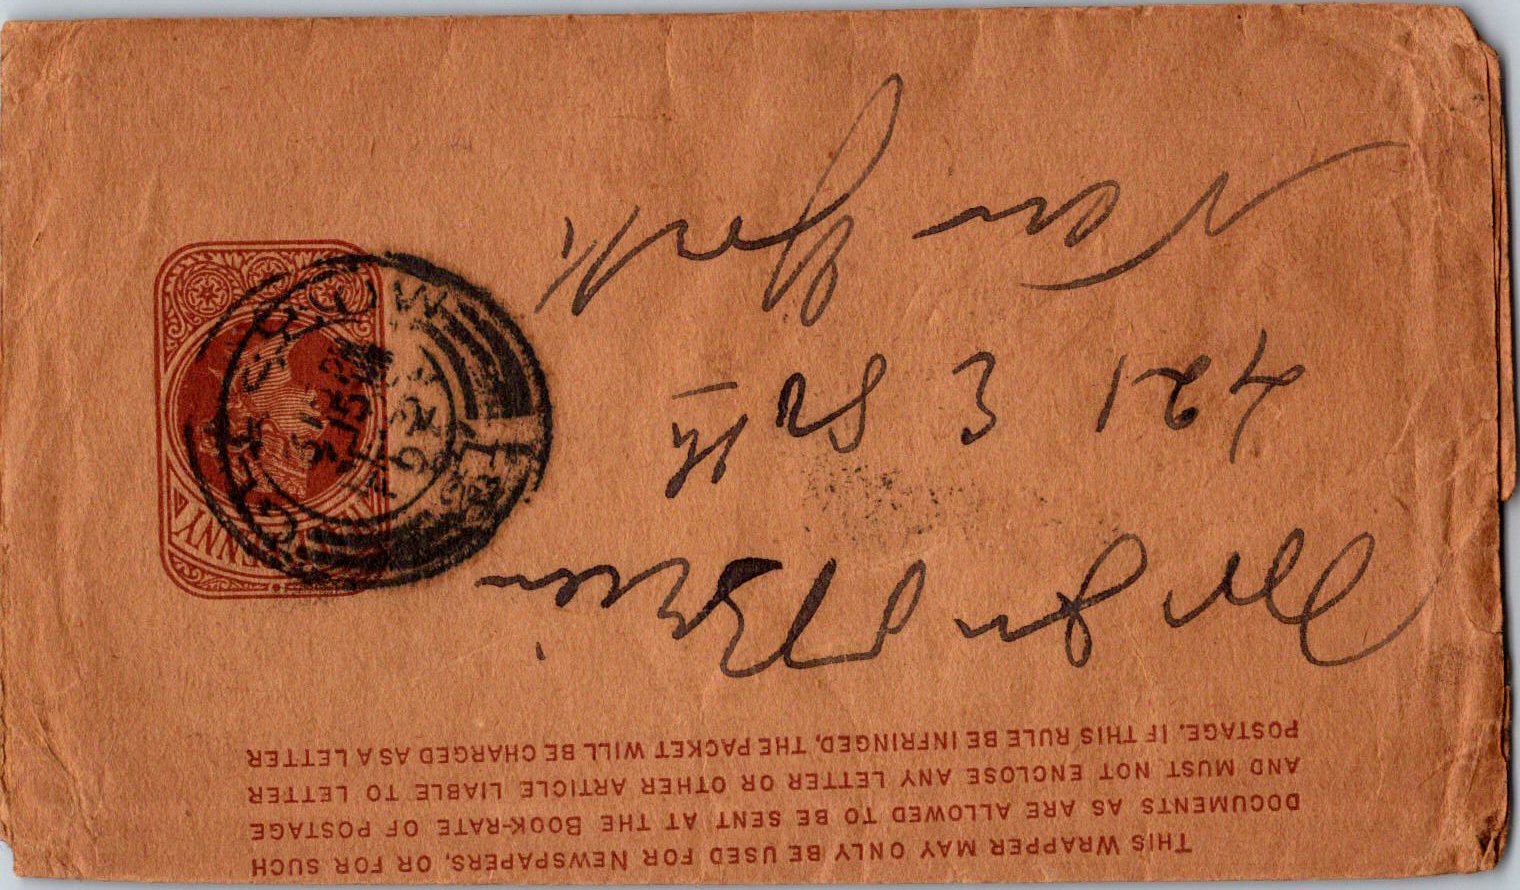 THIS WRAPPER MAY ONLY BE USED FOR NEWSPAPERS, OR FOR SUCH
DOCUMENTS AS ARE ALLOWED TO BE SENT AT THE BOOK-RATE OF POSTAGE
AND MUST NOT ENCLOSE ANY LETTER OR OTHER ARTICLE LIABLE TO LETTER
POSTAGE. IF THIS RULE BE INFRINGED, THE PACKET WILL BE CHARGED AS A LETTER
421 E
New York